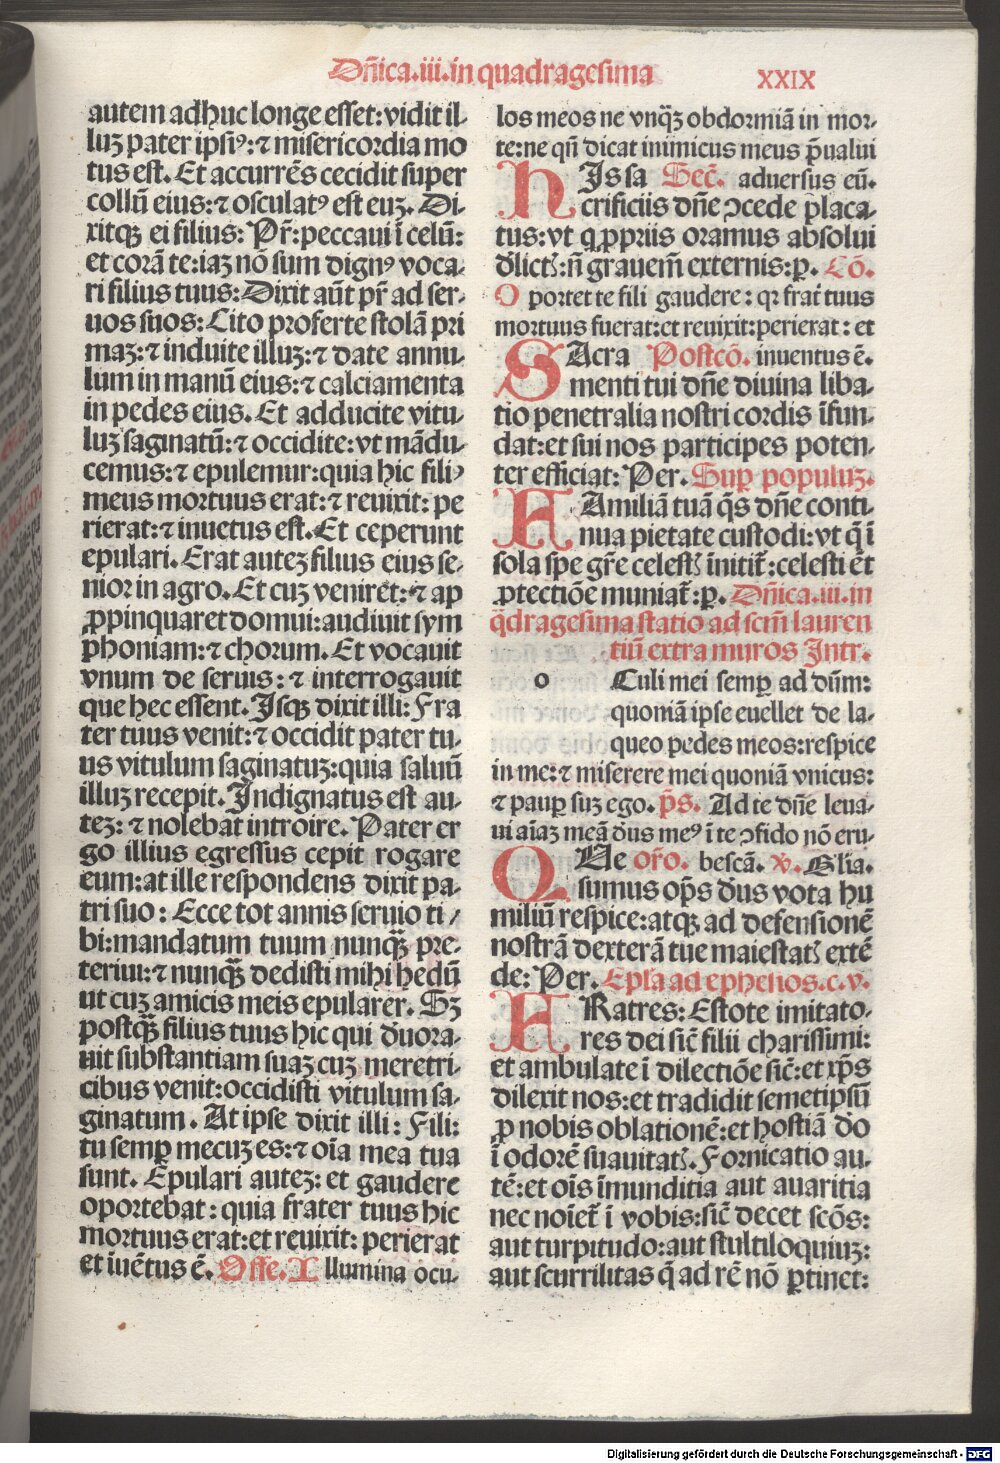 Dñica.iii.in quadragesima
XXIX
autem adhuc longe esset: vidit il-
luꝫ pater ipsiꝰ: ⁊ misericordia mo
tus est. Et accurrẽs cecidit super
collũ eius: ⁊ osculatꝰ est euꝫ. Di-
xitqꝫ ei filius: Pr̃: peccaui ĩ celũ:
et corã te: iaꝫ nõ sum dignꝰ voca-
ri filius tuus: Dixit aũt pr̃ ad ser-
uos suos: Cito proferte stolã pri
maꝫ: ⁊ induite illuꝫ: ⁊ date annu-
lum in manũ eius: ⁊ calciamenta
in pedes eius. Et adducite vitu-
luꝫ saginatũ: ⁊ occidite: vt mãdu-
cemus: ⁊ epulemur: quia hic filiꝰ
meus mortuus erat: ⁊ reuixit: pe
rierat: ⁊ inuẽtus est. Et ceperunt
epulari. Erat auteꝫ filius eius se-
nior in agro. Et cuꝫ veniret: ⁊ ap
ꝓpinquaret domui: audiuit sym
phoniam: ⁊ chorum. Et vocauit
vnum de seruis: ⁊ interrogauit
que hec essent. Isqꝫ dixit illi: Fra
ter tuus venit: ⁊ occidit pater tu-
us vitulum saginatuꝫ: quia saluũ
illuꝫ recepit. Indignatus est au-
teꝫ: ⁊ nolebat introire. Pater er
go illius egressus cepit rogare
eum: at ille respondens dixit pa-
tri suo: Ecce tot annis seruio ti/
bi: mandatum tuum nunqꝫ̃ pre-
teriui: ⁊ nunqꝫ̃ dedisti mihi hedũ
ut cuꝫ amicis meis epularer. Sꝫ
postqꝫ̃ filius tuus hic qui d̃uora-
uit substantiam suaꝫ cuꝫ meretri-
cibus venit: occidisti vitulum sa-
ginatum. At ipse dixit illi: Fili:
tu semꝑ mecuꝫ es: ⁊ oĩa mea tua
sunt. Epulari auteꝫ: et gaudere
oportebat: quia frater tuus hic
mortuus erat: et reuixit: perierat
et iuẽtus ẽ. Offe. Illumina ocu-
los meos ne vnqꝫ̃ obdormiã in mor-
te: ne qñ dicat inimicus meus p̃ualui
HIssa Sec̃. aduersus eũ.
crificiis dñe ↄcede placa-
tus: vt q ꝓpriis oramus absolui
d̃lictꝭ: ñ grauem̃ externis: p. Cõ.
Oportet te fili gaudere: qꝛ frat̃ tuus
mortuus fuerat: et reuixit: perierat: et
SAcra Postcõ. inuentus ẽ.
menti tui dñe diuina liba-
tio penetralia nostri cordis ĩfun-
dat: et sui nos participes poten-
ter efficiat: Per. Suꝑ populuꝫ.
FAmiliã tuã q̃s dñe conti-
nua pietate custodi: vt q̃ ĩ
sola spe gr̃e celestꝭ ĩnitit̃: celesti ẽt
ꝓtectiõe muniat̃: p. Dñica.iii.in
q̃dragesima statio ad scm̃ lauren
tiũ extra muros Intr.
o Culi mei semꝑ ad dñm:
quoniã ipse euellet de la-
queo pedes meos: respice
in me: ⁊ miserere mei quoniã vnicus:
⁊ pauꝑ suꝫ ego. p̃s. Ad te dñe leua-
ui aĩaꝫ meã d̃us meꝰ ĩ te ↄfido nõ eru-
QUe or̃o. bescã. ℣. Glĩa.
sumus op̃s d̃us vota hu
miliũ respice: atqꝫ ad defensionẽ
nostrã dexterã tue maiestatꝭ extẽ
de: Per. Epl̃a ad ephesios.c.v.
FRatres: Estote imitato-
res dei sic̃ filii charissimi:
et ambulate ĩ dilectiõe sic̃: et xp̃s
dilexit nos: et tradidit semetipsũ
ꝓ nobis oblationẽ: et hostiã d̃o
ĩ odorẽ suauitatꝭ. Fornicatio au-
tẽ: et oĩs ĩmunditia aut auaritia
nec noĩet̃ ĩ vobis: sic̃ decet scõs:
aut turpitudo: aut stultiloquiuꝫ:
aut scurrilitas q̃ ad rẽ nõ ꝑtinet:
Digitalisierung gefördert durch die Deutsche Forschungsgemeinschaft - DFG